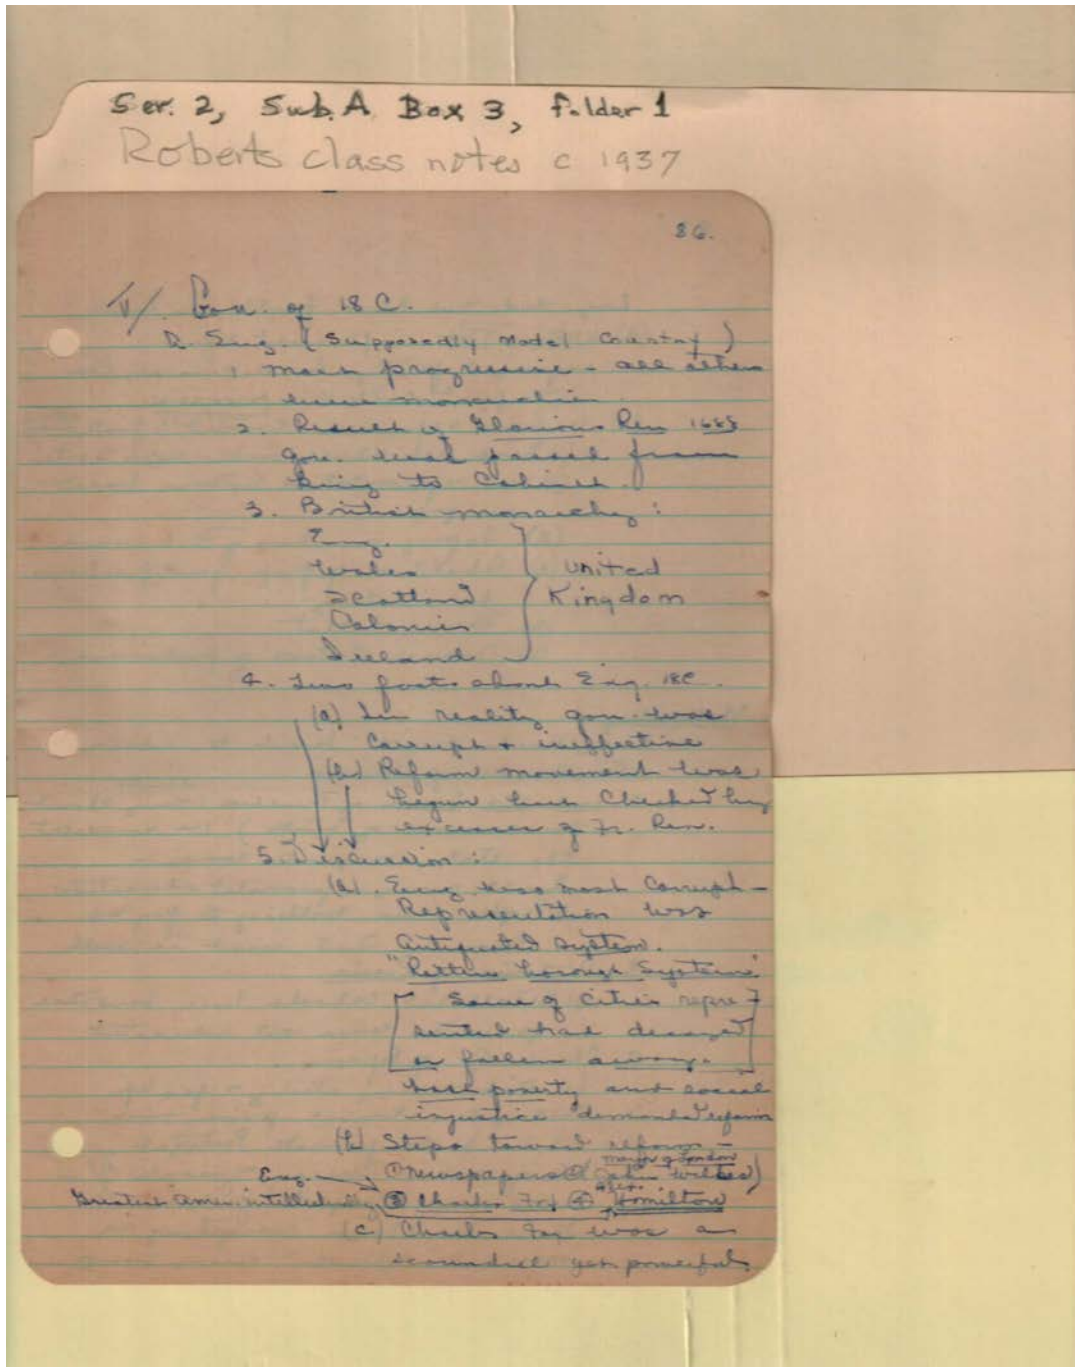 Ser. 2, Sub. A Box 3, folder 1
Roberts class notes c 1937
86.
V/. Gov. of 18 C.
D. Eng. (Supposedly Model Country)
1. most progressive - all others
were monarchies
2. Result of Glorious Rev 1688
gov. was passed from
King to Cabinet.
3. British monarchy:
Eng.
Wales
Scotland
Colonies
Ireland
United
Kingdom
4. Two facts about Eng. 18C
(a) In reality gov. was
Corrupt + ineffective
(b) Reform movement was
begun but Checked by
excesses of Fr. Rev.
5. Discussion:
(a). Eng was most Corrupt -
Representation was
antiquated system.
"Rotten borough System"
Some of cities repre-
sented had decayed
or fallen away.
poverty and social
injustice demanded reform
(b) Steps toward reform -
mayor of London
① newspapers ② John Wilkes)
Eng.
Greatest Amer. intellectually ③ Charles Fox ④ Alex. Hamilton
(c) Charles Fox was a
scoundrel yet powerful